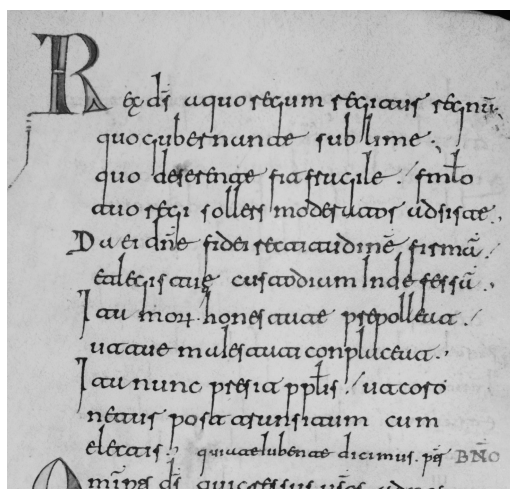 Rex ds̄ a quo regum regitur regnū.
quo gubernante sublime.
quo deserente fit fragile. fm̄lo
tuo regi sollers moderator adsiste.
Da ei dn̄e fidei rectitudinē firmā.
et legis tue custodiam indefessā.
Ita mor honestate prepolleat.
ut tue maiestati conplaceat.
Ita nunc presit pplīs. ut coro
netur post transitum cum
electis. qui te iubente dicimus. pr̄s BNŌ